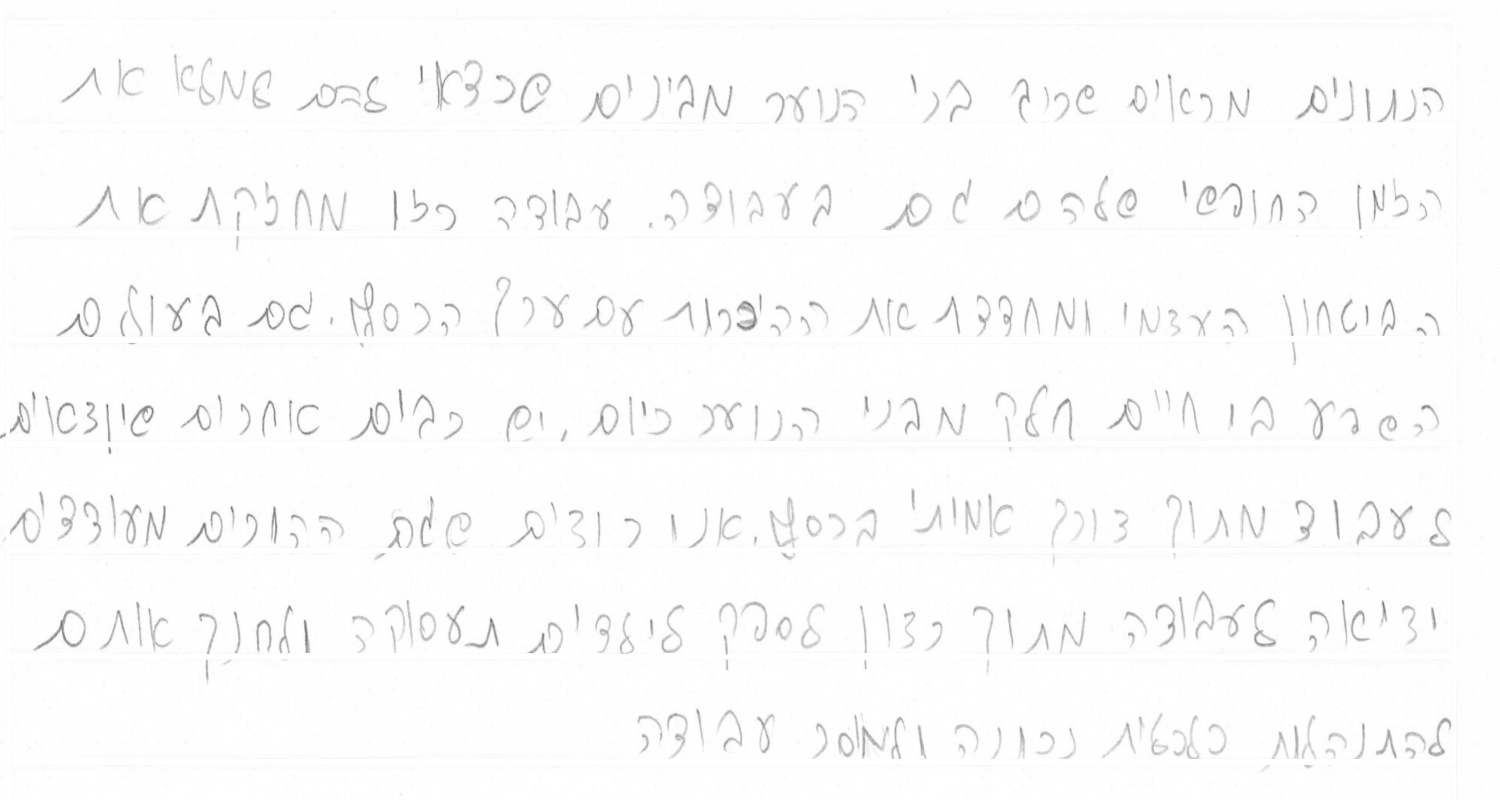 הנתונים מראים שרוב בני הנוער מבינים שכדאי להם למלא את
הזמן החופשי שלהם גם בעבודה. עבודה כזו מחזקת את
הביטחון העצמי ומחדדת את ההיכרות עם ערך הכסף. גם בעולם
השפע בו חיים חלק מבני הנוער כיום, יש רבים אחרים שיוצאים
לעבוד מתוך צורך אמיתי בכסף. אנו רוצים שגם ההורים מעודדים
יציאה לעבודה מתוך רצון לספק לילדים תעסוקה ולחנך אותם
להתנהלות כלכלית נכונה ולמוסר עבודה